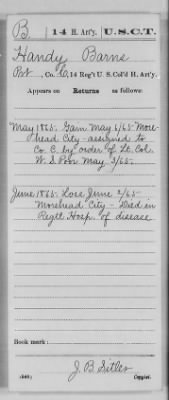 B | 14 H. Art'y. | U.S.C.T.
Handy Barns
Pvt, Co. C, 14 Reg't U. S. Col'd H. Art'y.
Appears on Returns as follows:
May 1865. Gain May 6/65 More-
head City - assigned to
Co. C. by order of Lt. Col.
W. S. Poor May 3/65.
June 1865. Loss June 2/65-
Morehead City - Died in
Regtl Hosp. of disease
Book mark:
J. B. Sitler
(546) Copyist.